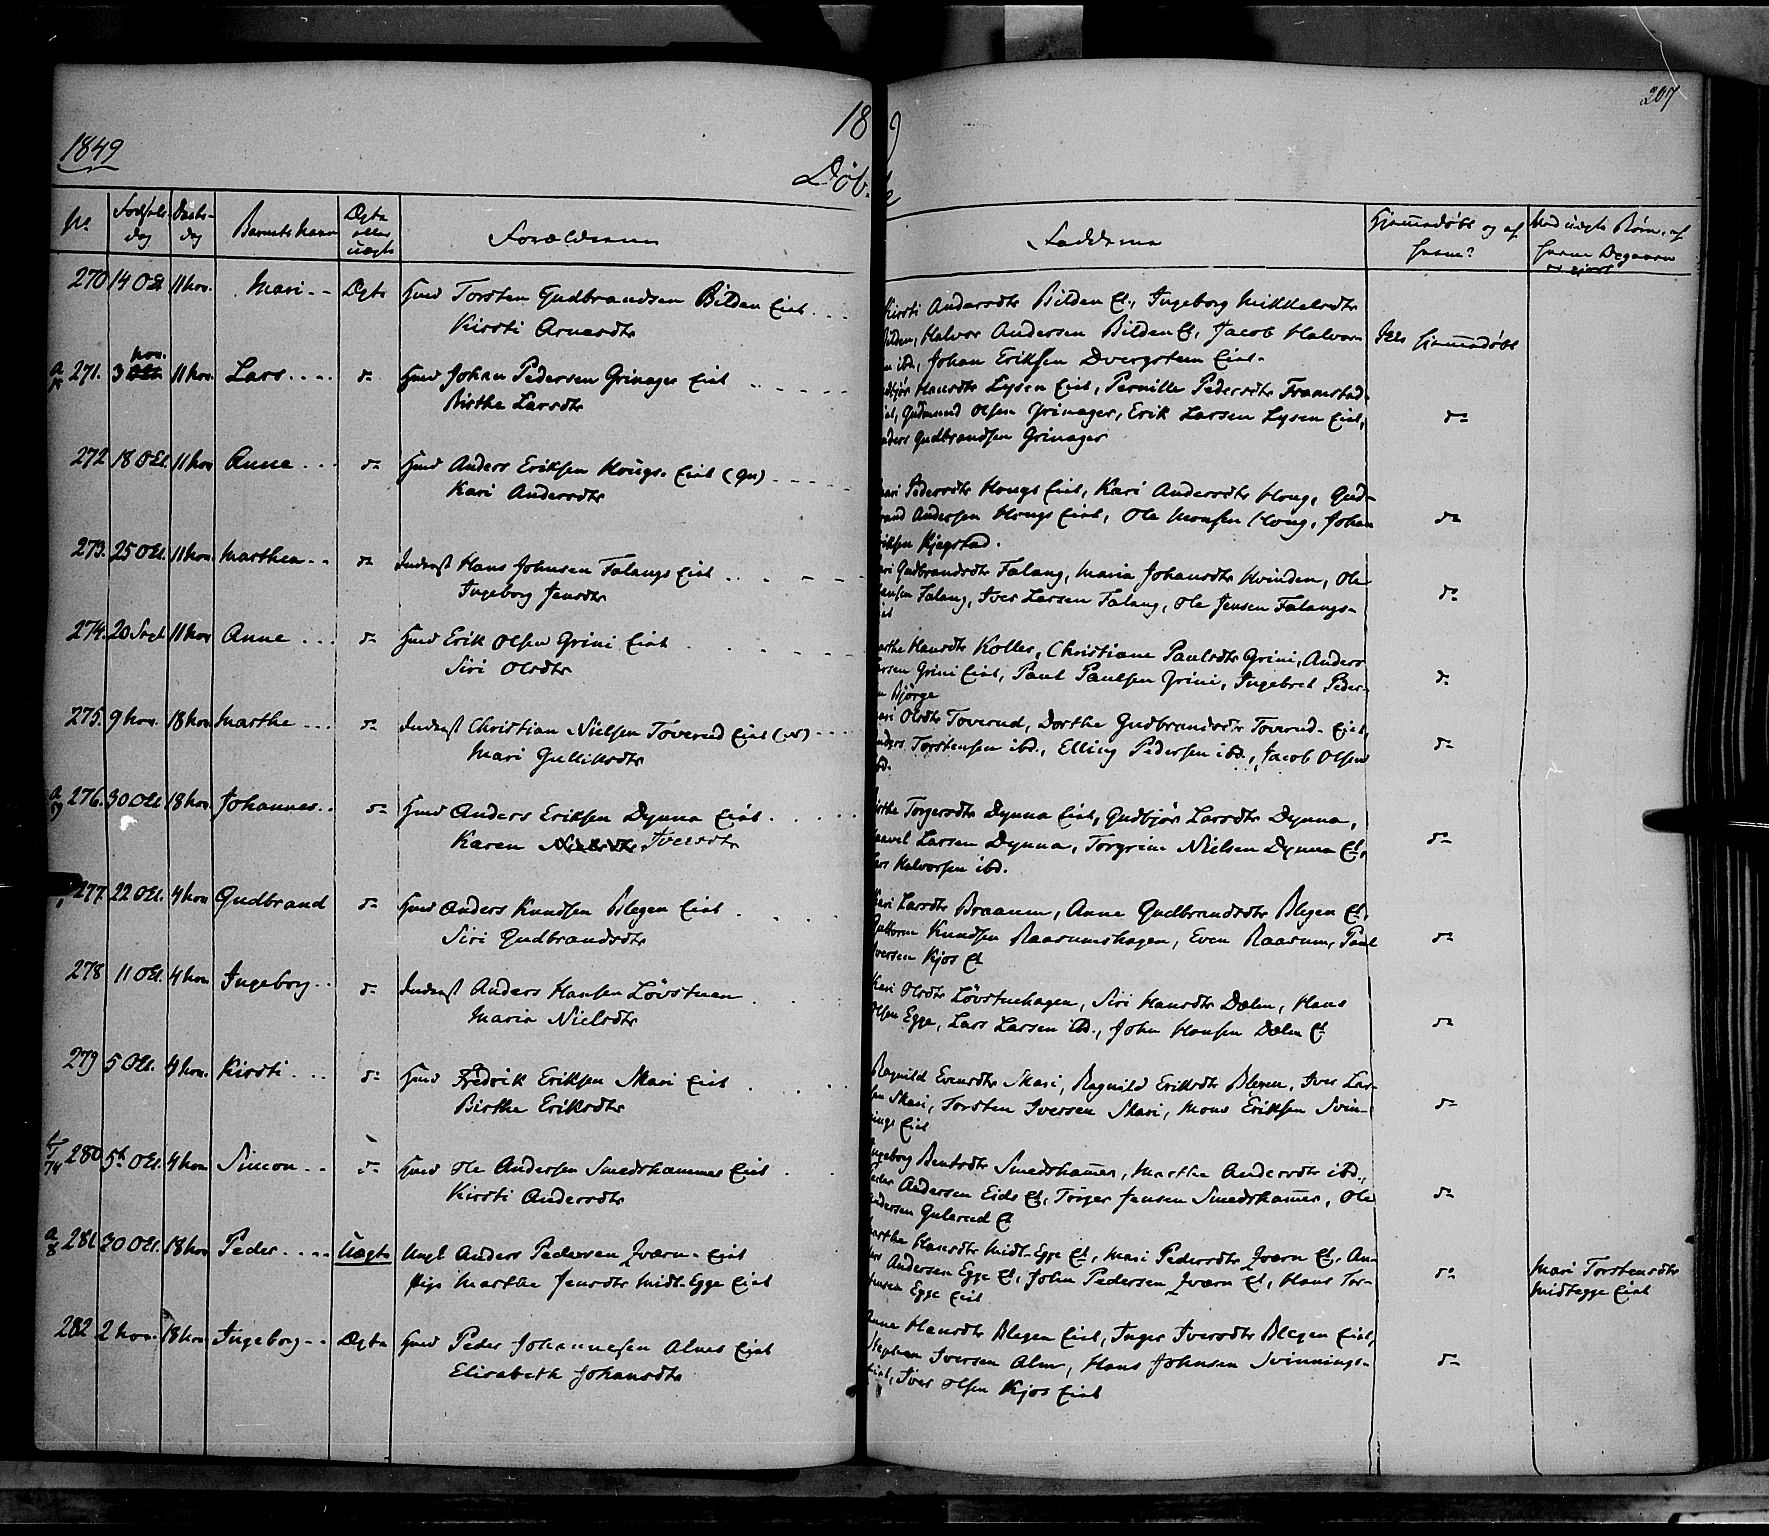 207
18
1849
Døb
No
Fødsels-
dag
Daabs-
dag
Barnets Navn
Ægte
eller
uægte
Forældrene
Fadderne
Hjemmedøbt og af
hvem?
Ved uægte Børn, af
hvem Degaven
270 14 Oct 11 Nov. Mari Ægte Huusmd Torsten Gudbrandsen Bilden Eiet
Kirsti Arnesdtr
Kirsti Andersdtr Bilden Et., Ingeborg Mikkelsdtr
Bilden, Halvor Andersen Bilden Et., Jacob Halvor-
ibd., Johan Eriksen Dvergsten Eiet
Ikke hjemmedøbt
271. 3 Nov. 11 Nov. Lars do Huusmd Johan Pedersen Grinager Eiet
Birthe Larsdtr
Hansdtr Lysen Eiet, Pernille Pedersdtr Framstad-
Gudmund Olsen Grinager, Erik Larsen Lysen Eiet,
Gudbrandsen Grinager
do
272 18 Oct. 11 Nov Anne do Huusmd Anders Eriksen Hougs-Eiet (Gr)
Kari Andersdtr
Pedersdtr Hougs Eiet, Kari Andersdtr Houg, Gud-
brand Andersen Hougs Eiet, Ole Monsen Houg, Johan
Eriksen Kjegstad.
do
273. 25 Oct. 11 Nov. Marthea do Inderst Hans Johnsen Falangs Eiet
Ingeborg Jensdtr
Gudbrandsdtr Falang, Maria Johansdtr Hvinden, Ole
Hansen Falang, Iver Larsen Falang, Ole Jensen Falangs-
do
274. 20 Sept 11 Nov Anne do Huusmd Erik Olsen Grini Eiet
Siri Olsdtr
Marthe Hansdtr Koller, Christiane Paulsdtr Grini, Anders
Larsen Grini Eiet, Paul Paulsen Grini, Ingebret Peder-
Bjørge
do
275. 9 Nov. 18 Nov Marthe do Inderst Christian Nielsen Toverud Eiet
Mari Gulliksdtr
Olsdtr Toverud, Dorthe Gudbrandsdtr Toverud-Eiet,
Anders Torstensen ibd., Elling Pedersen ibd., Jacob Olsen
ibd.
do
276. 30 Oct. 18 Nov Johannes do Huusmd Anders Eriksen Dynna Eiet
Karen Iversdtr
Birthe Torgersdtr Dynna Eiet, Gudbjør Larsdtr Dynna,
Larsen Dynna, Torgrim Nielsen Dynna Et,
Halvorsen ibd.
do
277. 22 Oct. 4 Nov Gudbrand do Huusmd Anders Knudsen Blegen Eiet
Siri Gudbrandsdtr
Kari Larsdtr Braaum, Anne Gudbrandsdtr Blegen Et,
Guttorm Knudsen Raasumshagen, Even Raasum, Paul
Iversen Kjos Et
do
278 11 Oct. 4 Nov. Ingeborg do Inderst Anders Hansen Løvstuen
Maria Nielsdtr
Kari Olsdtr Løvstuehagen, Siri Hansdtr Dælen, Hans
Olsen Egge, Lars Larsen ibd., John Hansen Dælen Et
do
279 5 Oct. 4 Nov. Kirsti do Huusmd Fredrik Eriksen Skari Eiet
Birthe Eriksdtr
Ragnild Evensdtr Skari, Ragnild Eriksdtr Blegen, Iver Lar-
sen Skari, Torsten Iversen Skari, Mons Eriksen Svin-
nings Eiet
do
280 5t Oct. 4 Nov Simon do Huusmd Ole Andersen Smedshammer Eiet
Kirsti Andersdtr
Ingeborg Bentsdtr Smedshamer, Marthe Andersdtr ibd.,
Peder Andersen Eids Et, Torger Jensen Smedshamer, Ole
Andersen Gulerud Et
do
281 30 Oct. 18 Nov Peder Uægte Ungk Anders Pedersen Qværn-Eiet
Pige Marthe Jensdtr Midt-Egge Eiet
Marthe Hansdtr Midt-Egge Et, Mari Pedersdtr Qværn Et, An-
Andersen Egge Et, John Pedersen Qværn Et, Hans Tor-
Egge Eiet
do
Mari Torstensdtr
Midtegge Eiet
282 2 Nov. 18 Nov Ingeborg Ægte Huusmd Peder Johannesen Alms Eiet
Elisabeth Johansdtr
Anne Hansdtr Blegen Eiet, Inger Iversdtr Blegen Eiet,
Iversen Alm, Hans Johnsen Svinnings-
Eiet, Iver Olsen Kjos Eiet
do